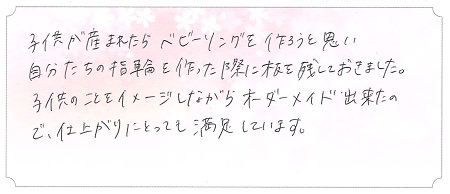 子供が産まれたら ベビーリングを作ろうと思い
自分たちの指輪を作った際に板を残しておきました。
子供のことをイメージしながら オーダーメイド出来たの
で、仕上がりにとっても満足しています。